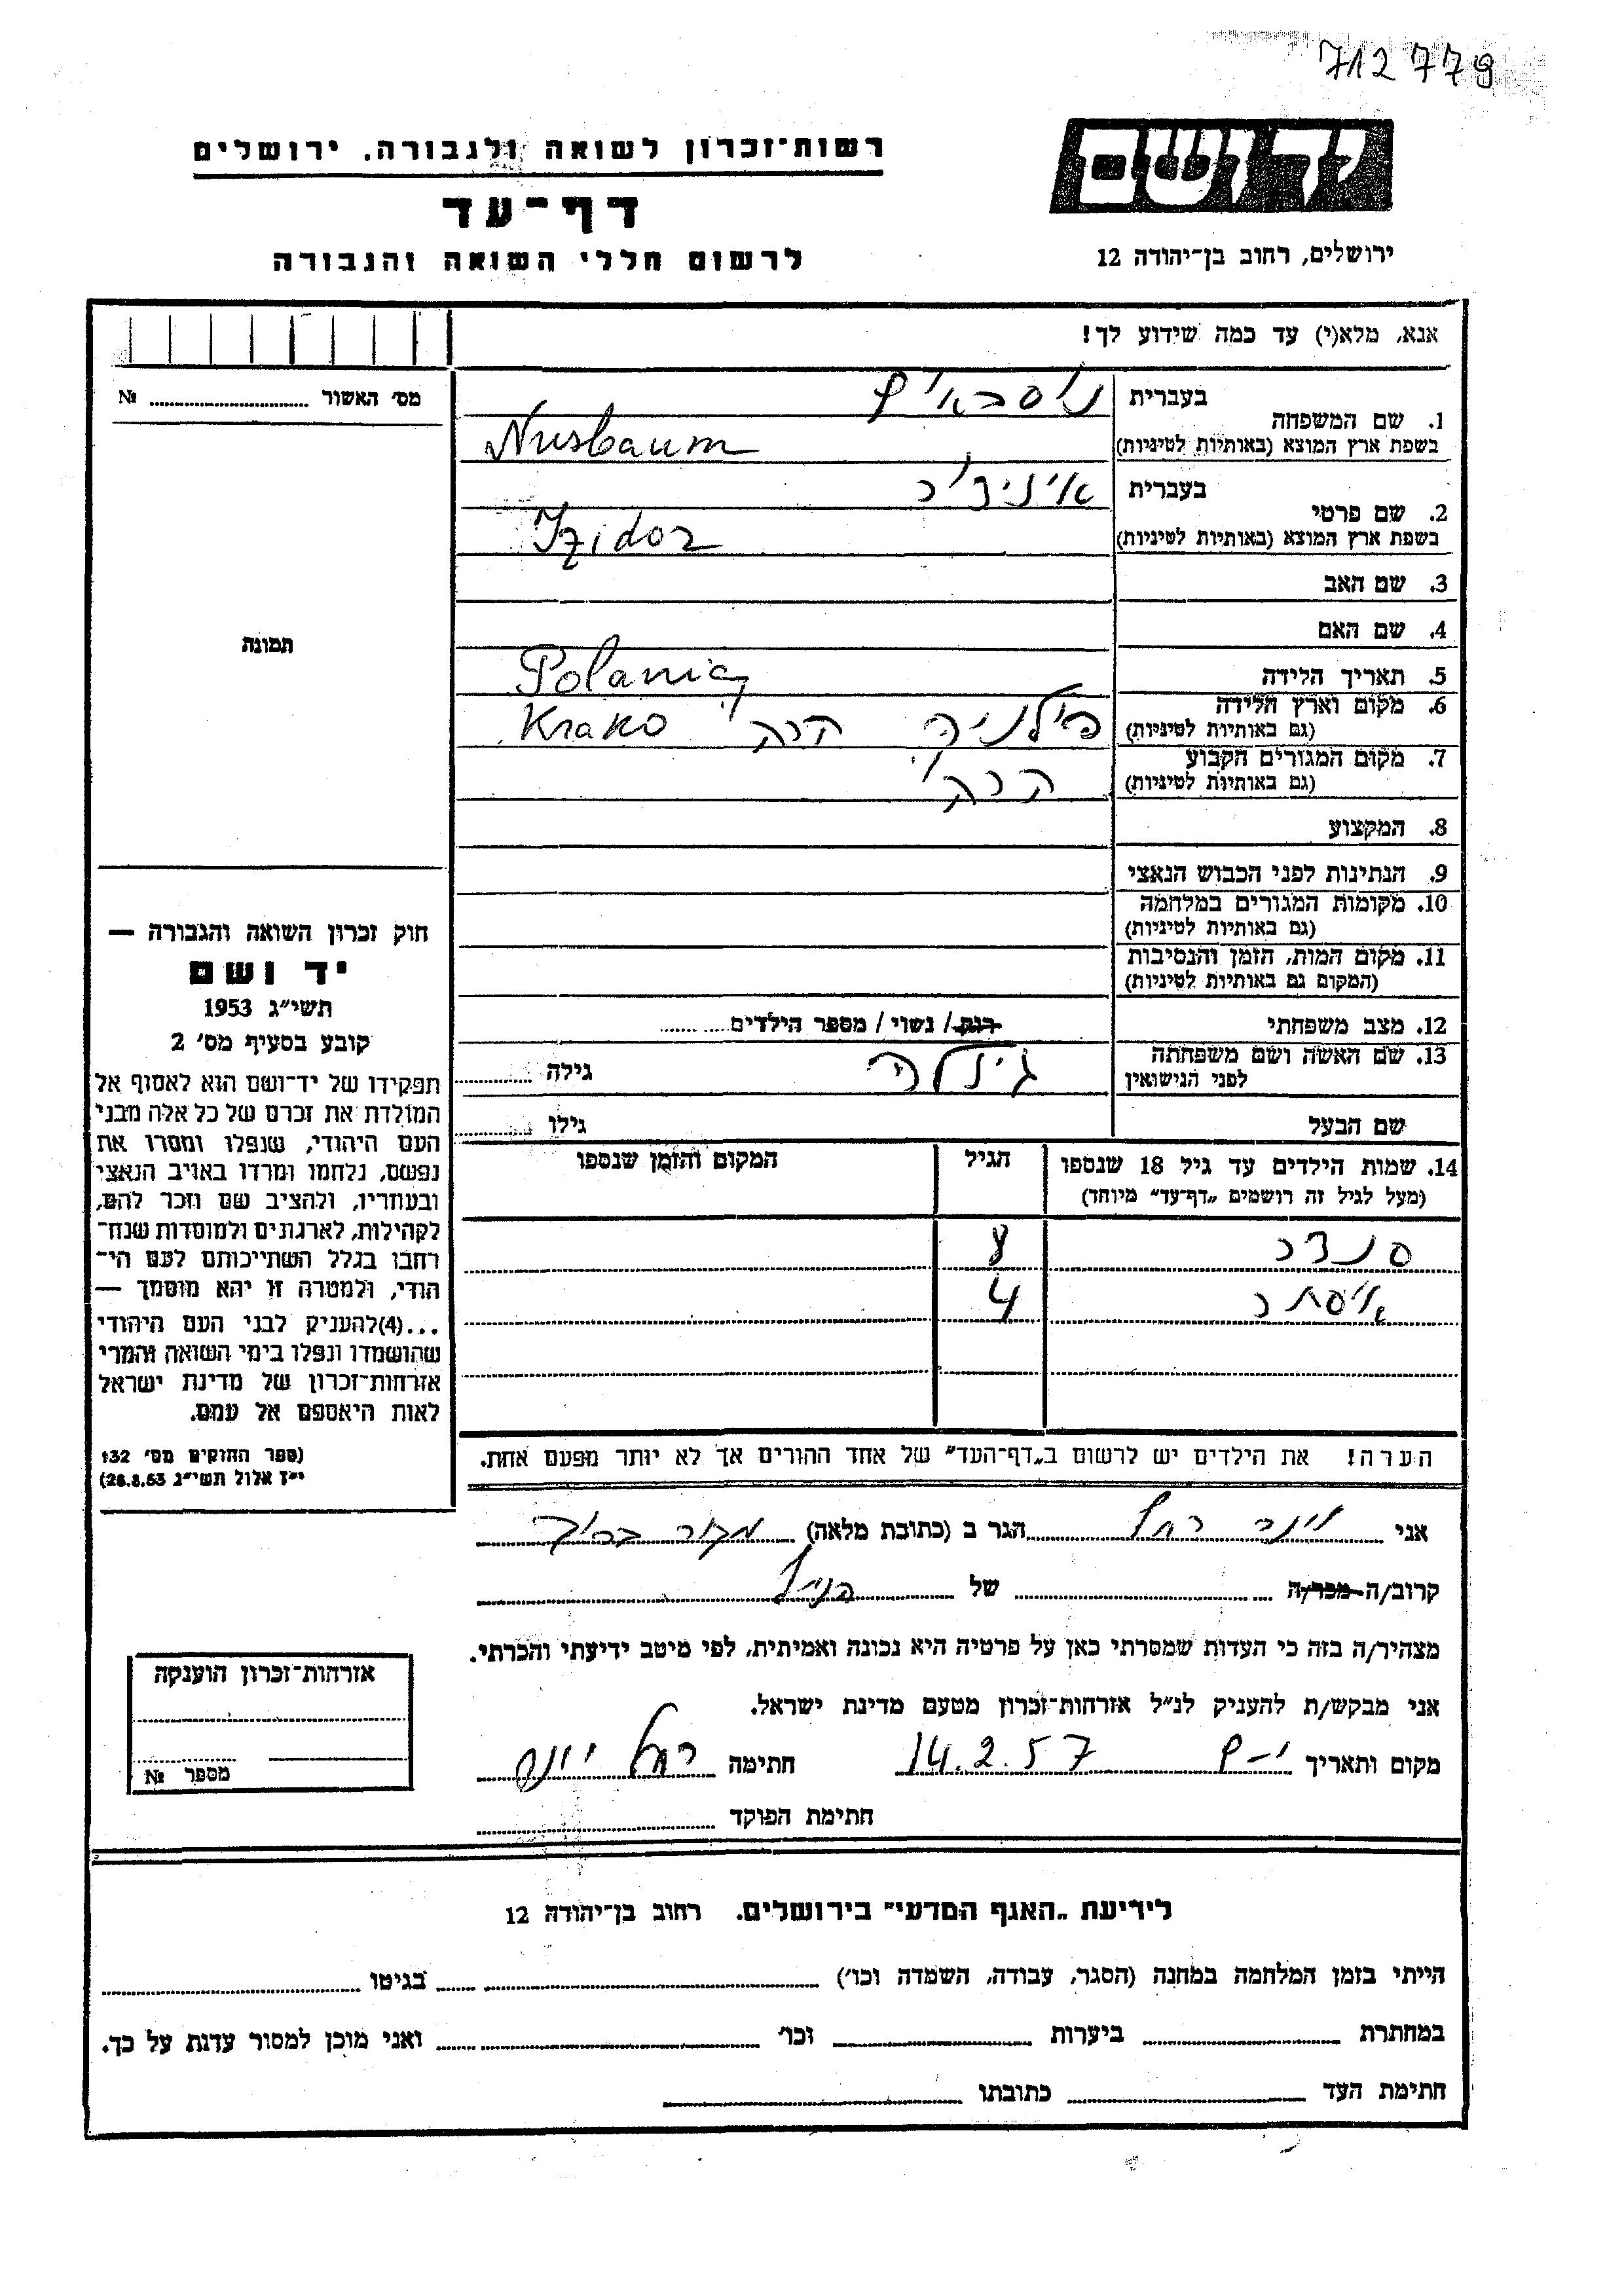 712779
יד ושם
רשות-זכרון לשואה ולגבורה, ירושלים
דף-עד
לרשום חללי השואה והגבורה
ירושלים, רחוב בן-יהודה 12
אנא, מלא(י) עד כמה שידוע לך!
מס׳ האשור ........ №
תמונה
חוק זכרון השואה והגבורה —
יד ושם
תשי״ג 1953
קובע בסעיף מס׳ 2
תפקידו של יד-ושם הוא לאסוף אל
המולדת את זכרם של כל אלה מבני
העם היהודי, שנפלו ומסרו את
נפשם, נלחמו ומרדו באויב הנאצי
ובעוזריו, ולהציב שם וזכר להם,
לקהילות, לארגונים ולמוסדות שנח־
רבו בגלל השתייכותם לעם הי־
הודי, ולמטרה זו יהא מוסמך —
...(4)להעניק לבני העם היהודי
שהושמדו ונפלו בימי השואה והמרי
אזרחות-זכרון של מדינת ישראל
לאות היאספם אל עמם.
(ספר החוקים מס׳ 132
י״ז אלול תשי״ג 28.8.53)
1. שם המשפחה
בעברית נוסבאום
בשפת ארץ המוצא (באותיות לטיניות) Nusbaum
2. שם פרטי
בעברית איזידור
בשפת ארץ המוצא (באותיות לטיניות) Izidor
3. שם האב
4. שם האם
5. תאריך הלידה Polania
6. מקום וארץ הלידה פולניה קרקו Krako
(גם באותיות לטיניות)
7. מקום המגורים הקבוע קרקו
(גם באותיות לטיניות)
8. המקצוע
9. הנתינות לפני הכבוש הנאצי
10. מקומות המגורים במלחמה
(גם באותיות לטיניות)
11. מקום המות, הזמן והנסיבות
(המקום גם באותיות לטיניות)
12. מצב משפחתי רווק / נשוי / מספר הילדים ........
13. שם האשה ושם משפחתה גיזלה גילה ........
לפני הנישואין
שם הבעל גילו ........
14. שמות הילדים עד גיל 18 שנספו הגיל המקום והזמן שנספו
(מעל לגיל זה רושמים „דף-עד״ מיוחד)
סנדר 8
אסתר 4
הערה! את הילדים יש לרשום ב„דף-העד״ של אחד ההורים אך לא יותר מפעם אחת.
אני רחל הגר ב (כתובת מלאה)
קרוב/ה מכר/ה ........ של הנ״ל
מצהיר/ה בזה כי העדות שמסרתי כאן על פרטיה היא נכונה ואמיתית, לפי מיטב ידיעתי והכרתי.
אני מבקש/ת להעניק לנ״ל אזרחות-זכרון מטעם מדינת ישראל.
מקום ותאריך י-ם 14.2.57 חתימה רחל
חתימת הפוקד ........
אזרחות-זכרון הוענקה
מספר №
לידיעת „האגף המדעי״ בירושלים, רחוב בן-יהודה 12
הייתי בזמן המלחמה במחנה (הסגר, עבודה, השמדה וכו׳) ........ בגיטו ........
במחתרת ........ ביערות ........ וכו׳ ........ ואני מוכן למסור עדות על כך.
חתימת העד ........ כתובתו ........